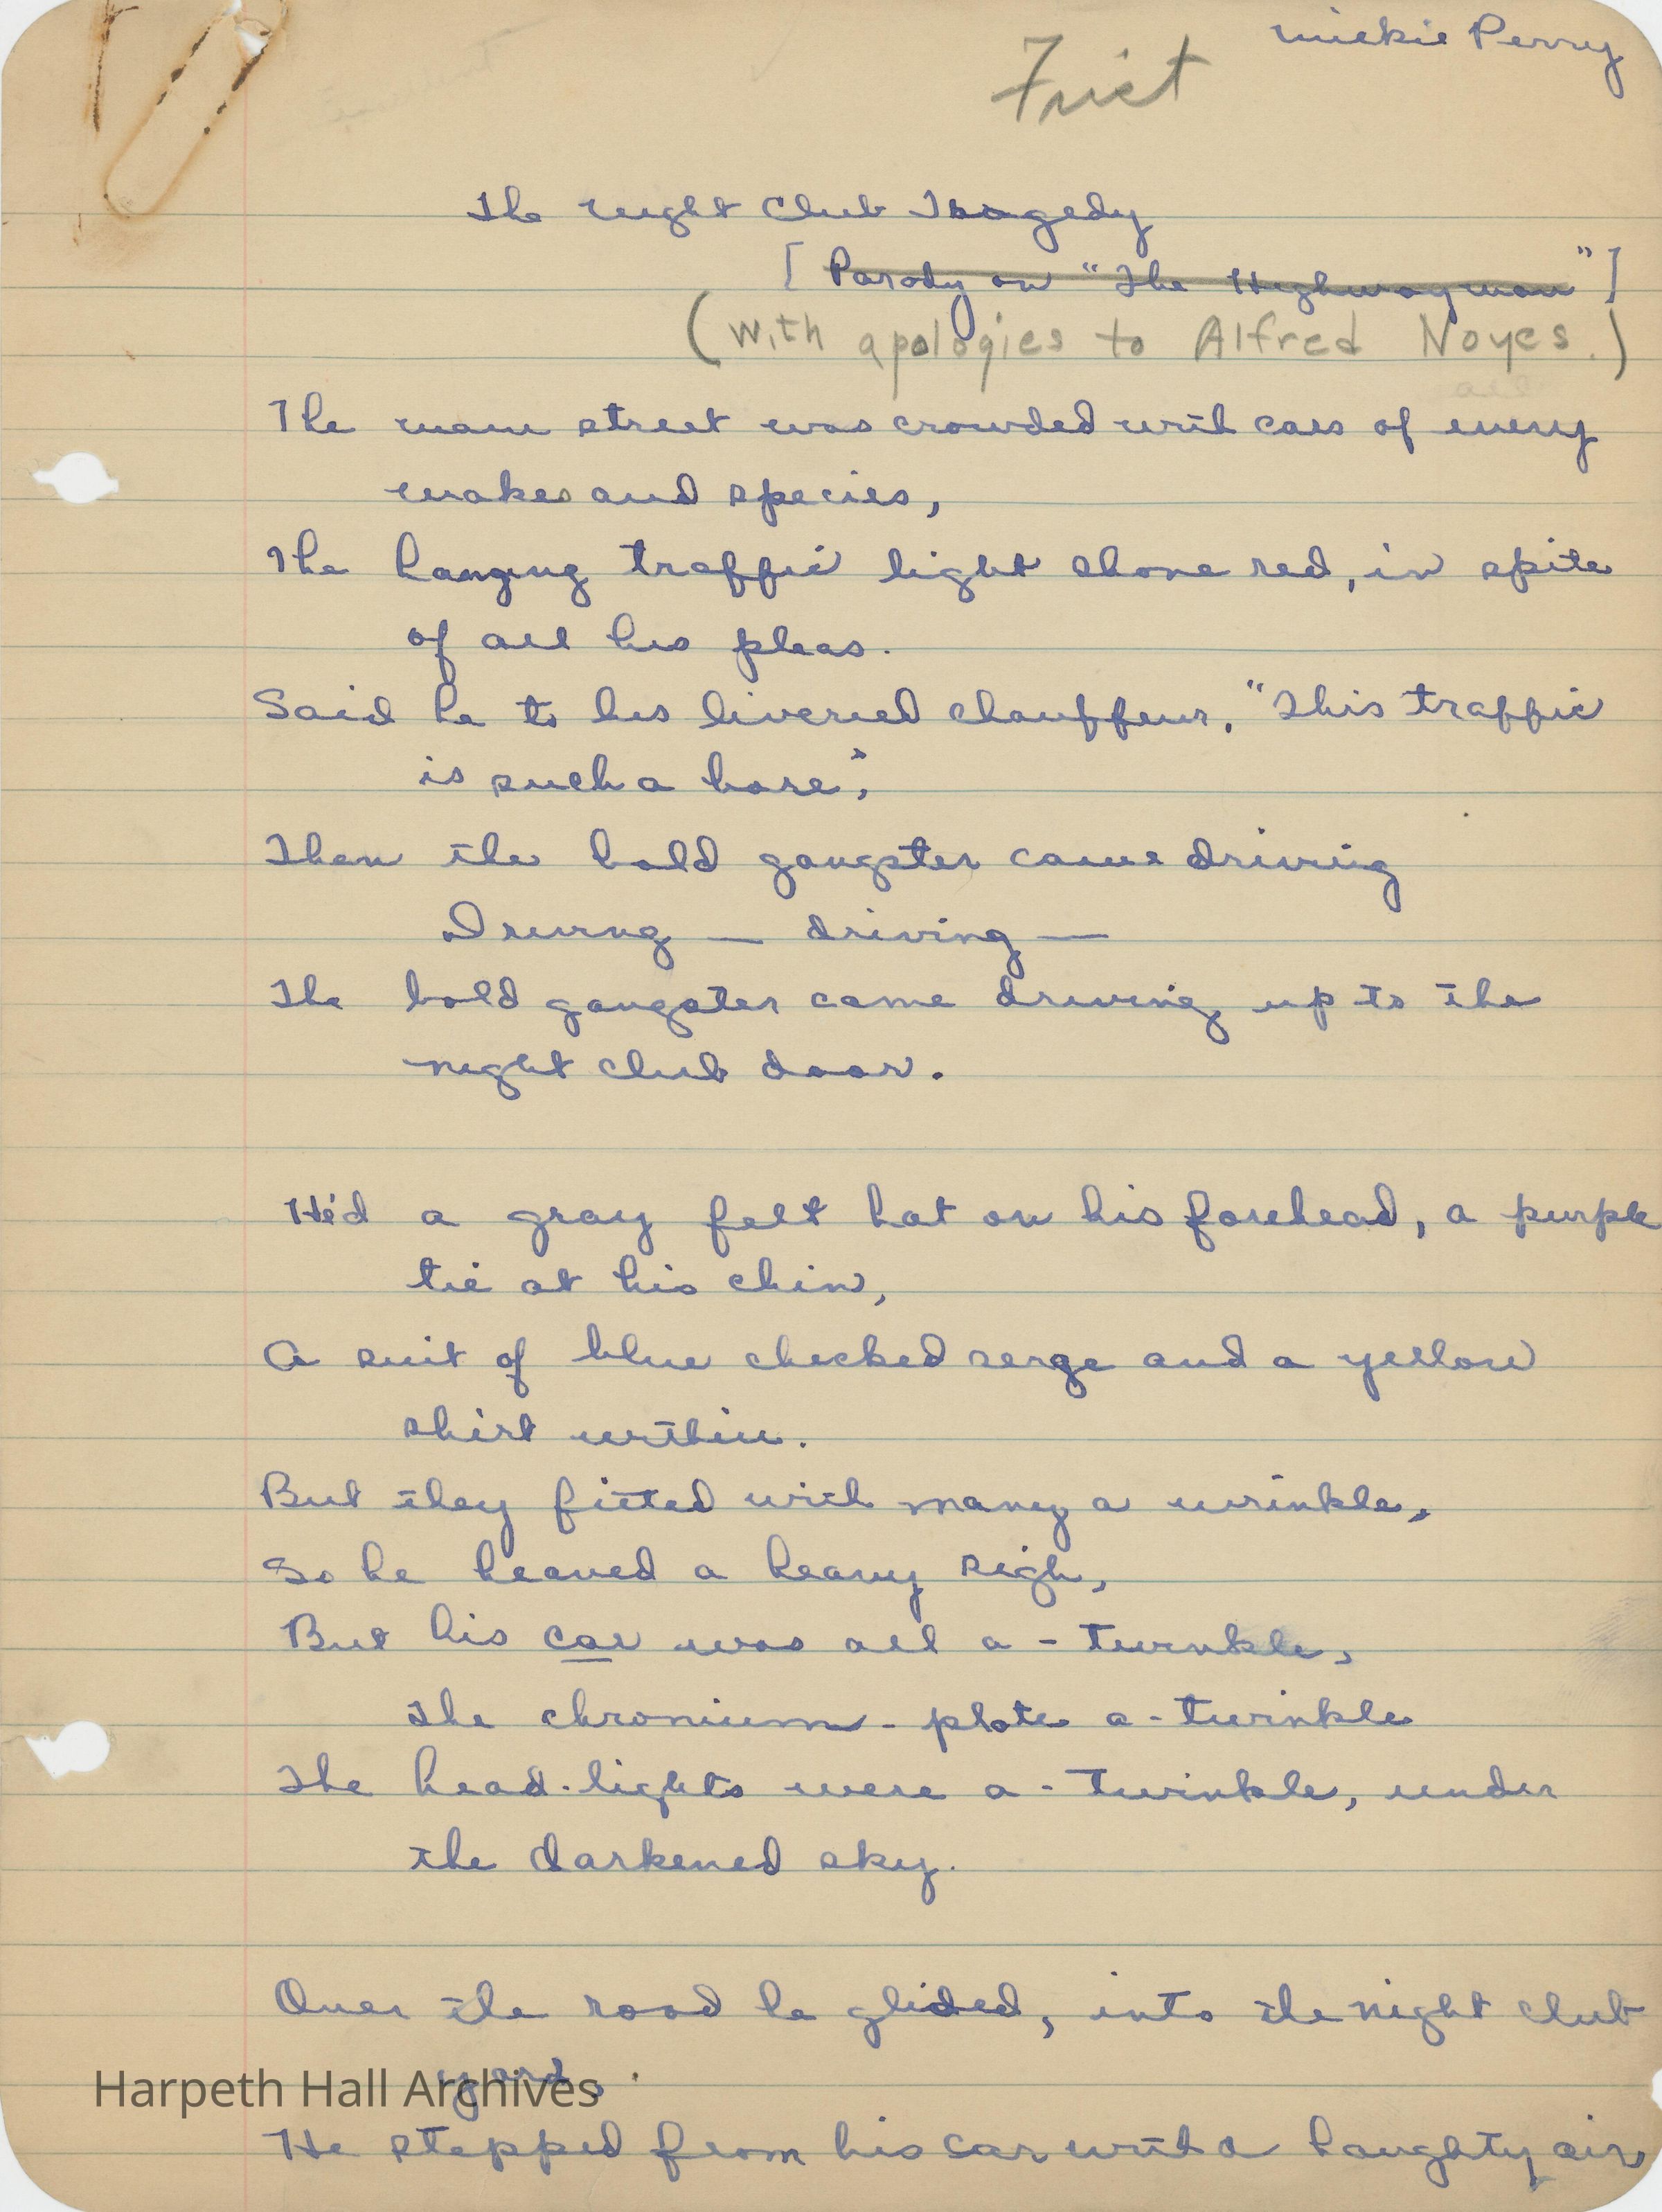 Mickie Perry
Frist
The Night Club Tragedy
[Parody on "The Highwayman"]
(With apologies to Alfred Noyes.)
all
The main street was crowded with cars of every
makes and species,
The hanging traffic light shone red, in spite
of all his pleas.
Said he to his liveried chauffeur, "This traffic
is such a bore",
Then the bold gangster came driving
Driving — driving —
The bold gangster came driving up to the
night club door.
He'd a gray felt hat on his forehead, a purple
tie at his chin,
A suit of blue checked serge and a yellow
shirt within.
But they fitted with many a wrinkle,
So he heaved a heavy sigh,
But his car was all a-twinkle,
The chromium-plate a-twinkle
The head-lights were a-twinkle, under
the darkened sky.
Over the road he glided, into the night club
yard,
Harpeth Hall Archives
He stepped from his car with a haughty air